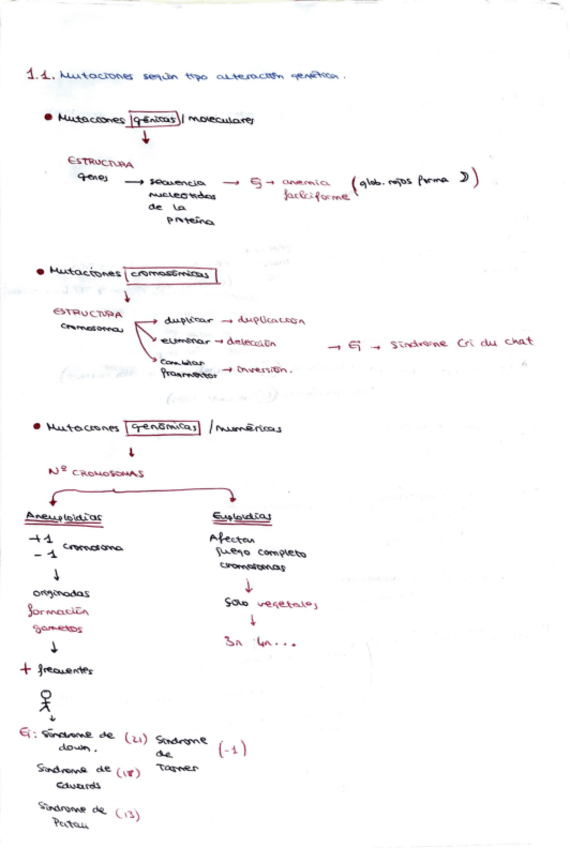 1.1. Mutaciones según tipo alteración genética.
• Mutaciones génicas / moleculares
ESTRUCTURA
genes → secuencia → Ej → anemia (glob. rojos forma ☽)
nucleotidos falciforme
de la
proteína
• Mutaciones cromosómicas
ESTRUCTURA
cromosomas → duplicar → duplicación
eliminar → delección → Ej → Síndrome Cri du chat
cambiar
fragmentos → inversión.
• Mutaciones genómicas / numéricas
Nº CROMOSOMAS
Aneuploidías Euploidías
+1 Afectan
-1 cromosoma juego completo
cromosomas
originadas
formación
gametos
Solo vegetales
3n 4n...
+ frecuentes
Ej: Síndrome de (21) Síndrome (-1)
down. de
Turner
Síndrome de (18)
Edwards
Síndrome de (13)
Patau